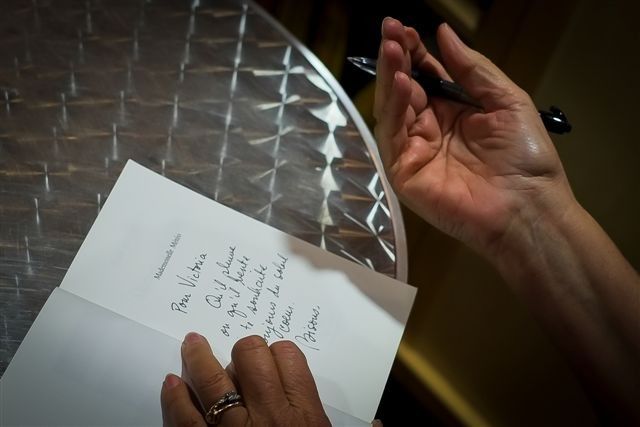 Mademoiselle Météo
Pour Victoria
Qu'il pleuve
ou qu'il vente
te souhaite
toujours du soleil
coeur.
Bisous.